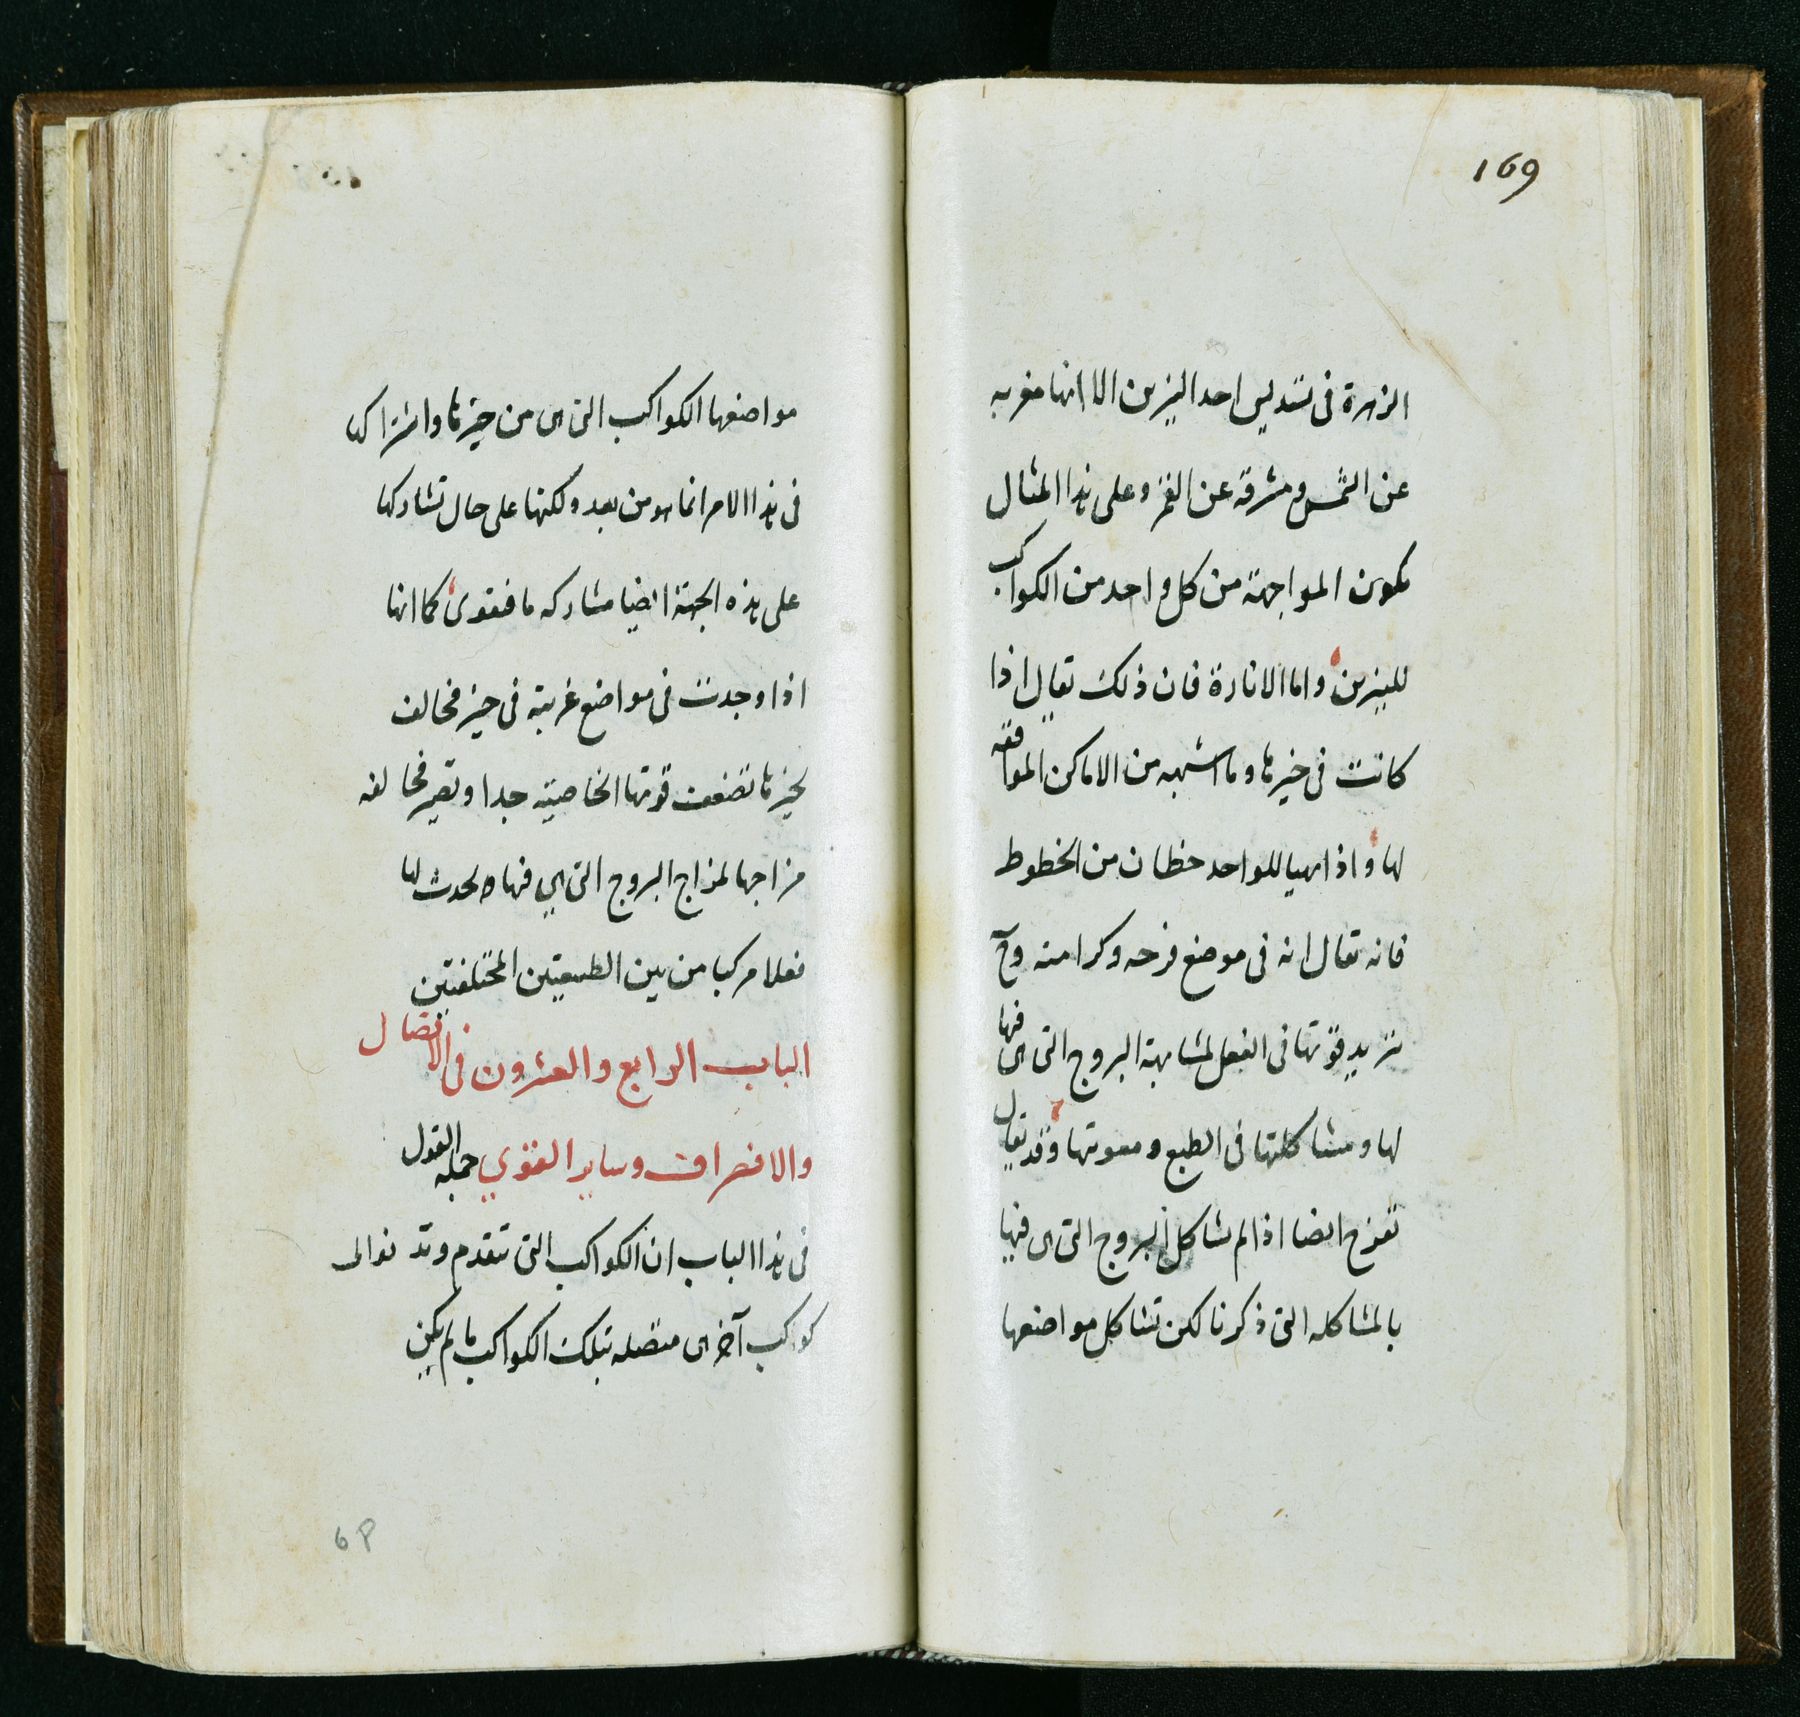 169
الزهرة فى تسديس احد النيرين الا انها مغربه
عن الشمس ومشرقة عن القمر وعلى هذا المثال
يكون المواجهة من كل واحد من الكواكب
للنيرين واما الانارة فان ذلك يقال اذا
كانت فى حيزها وما اشبهه من الاماكن الموافقه
لها واذا تهيا للواحد حظان من الحظوظ
فانه يقال انه فى موضع فرحه وكرامته وح
تزيد قوتها فى الفعل لمشابهة البروج التى هى فيها
لها ومشاكلتها فى الطبع ومعونتها وقد يقال
تفرح ايضا اذا لم تشاكل البروج التى هى فيها
بالمشاكله التى ذكرنا لكن تشاكل مواضعها
مواضعها الكواكب التى هى من حيزها واشتراكها
فى هذا الامر انما هو من بعد ولكنها على حال تشاركها
على هذه الجهة ايضا مشاركه ما فتقوى كما انها
اذا وجدت فى مواضع غريبة فى حيز مخالف
لحيزها تضعف قوتها الخاصية جدا وتصير مخالفه
مزاجها لمزاج البروج التى هي فيها ويحدث لها
فعلا مركبا من بين الطبيعتين المختلفتين
الباب الرابع والعشرون فى الاتصال
والانصراف وساير القوي جملة القول
فى هذا الباب ان الكواكب التى تتقدم وتتوالى
كواكب آخرى متصله بتلك الكواكب ما لم يكن
68